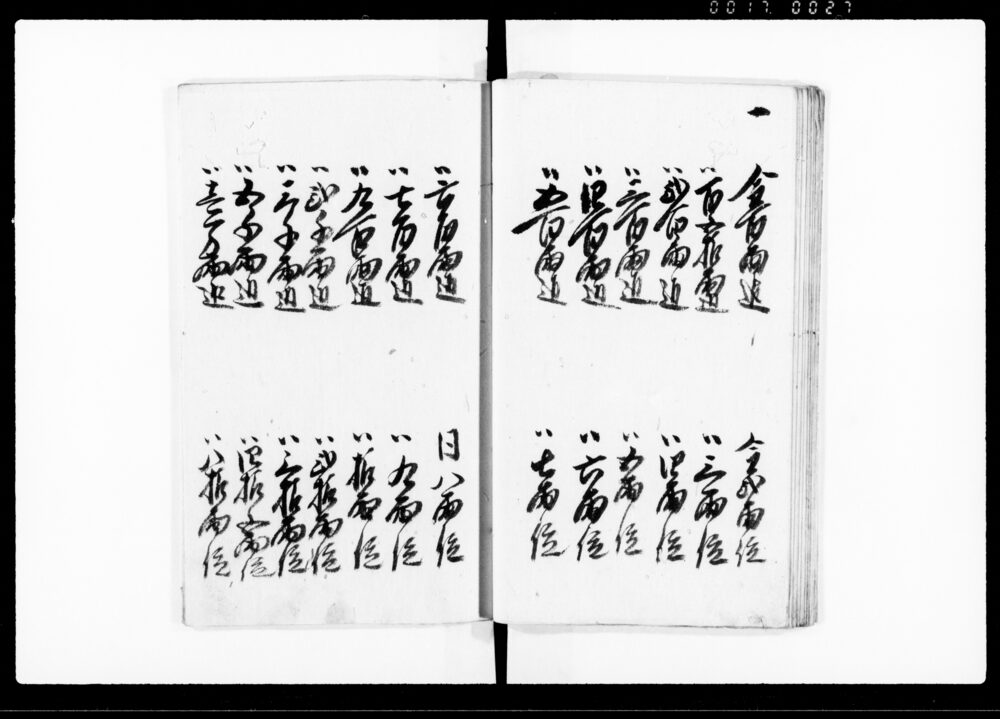 0017 0027
一
金百両迄 金弐両位
〃百五拾両迄 〃三両位
〃弐百両迄 〃四両位
〃三百両迄 〃五両位
〃四百両迄 〃六両位
〃五百両迄 〃七両位
〃六百両迄 同八両位
〃七百両迄 〃九両位
〃九百両迄 〃拾両位
〃弐千両迄 〃弐拾両位
〃三千両迄 〃三拾両位
〃五千両迄 〃四拾五両位
〃壱万両迄 〃八拾両位